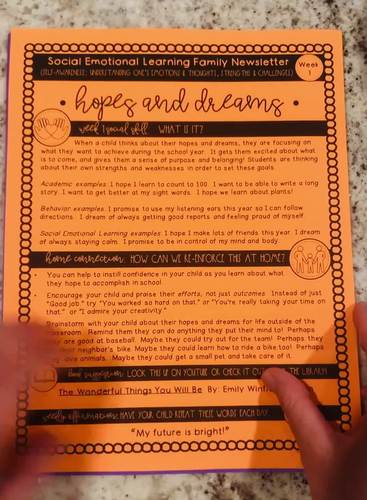 Social Emotional Learning Family Newsletter
(SELF-AWARENESS: UNDERSTANDING ONE'S EMOTIONS & THOUGHTS, STRENGTHS & CHALLENGES)
Week
1
• hopes and dreams •
week 1 social skill: WHAT IS IT?
When a child thinks about their hopes and dreams, they are focusing on
what they want to achieve during the school year. It gets them excited about what
is to come, and gives them a sense of purpose and belonging! Students are thinking
about their own strengths and weaknesses in order to set these goals.
Academic examples: I hope I learn to count to 100. I want to be able to write a long
story. I want to get better at my sight words. I hope we learn about plants!
Behavior examples: I promise to use my listening ears this year so I can follow
directions. I dream of always getting good reports and feeling proud of myself.
Social Emotional Learning examples: I hope I make lots of friends this year. I dream
of always staying calm. I promise to be in control of my mind and body.
home connection: HOW CAN WE RE-ENFORCE THIS AT HOME?
• You can help to instill confidence in your child as you learn about what
they hope to accomplish in school.
• Encourage your child and praise their efforts, not just outcomes. Instead of just
"Good job." try "You worked so hard on that." or "You're really taking your time on
that." or "I admire your creativity."
Brainstorm with your child about their hopes and dreams for life outside of the
classroom. Remind them they can do anything they put their mind to! Perhaps
are good at baseball. Maybe they could try out for the team! Perhaps they
neighbor's bike. Maybe they could learn how to ride a bike too! Perhaps
animals. Maybe they could get a small pet and take care of it.
Book suggestion: LOOK THIS UP ON YOUTUBE OR CHECK IT OUT THE LIBRARY!
The Wonderful Things You Will Be By: Emily
weekly affirmation: HAVE YOUR CHILD REPEAT THESE WORDS EACH DAY.
"My future is bright!"